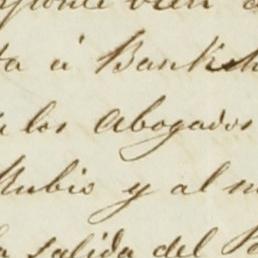 bien
ta á Banksh
los Abogados
Rubio y al
la salida del